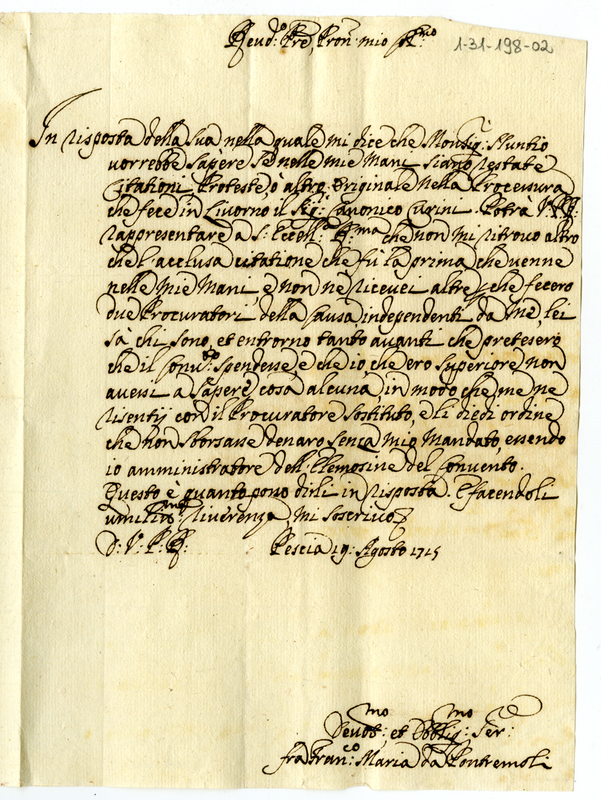 Reud:o Pre, Pron: mio Sig:mo
1-31-198-02
In risposta della sua nella quale mi dice che Monsig:r Nuntio
vorrebbe sapere se nelle mie mani siano restate
Citationi Proteste, ò altro originale nella Processura
che fece in Livorno il Sig:r Canonico Potrà V. P. R.
rappresentare a S: Eccell:a R:ma che non mi ritrovo altro
che l'acclusa citatione che fù la prima che venne
nelle mie mani, e non ne ricevei altre, che fecero
due Procuratori della causa independenti da me, lei
sà chi sono, et entrorno tanto avanti che pretesero
che il Conv:to spendesse, e che io che ero superiore non
avessi a sapere cosa alcuna in modo che me ne
risentij con il Procuratore sostituto, e li diedi ordine
che non sborsasse denaro senza mio mandato, essendo
io amministratore dell'Elemosine del Convento.
Questo è quanto posso dirli in risposta. E facendoli
umiliss:ma riverenza, mi soscrivo
D: V: P: R:    Pescia 19: Agosto 1715
Devott:mo et Obblig:mo Ser:e
fra Fran:co Maria da Pontremoli